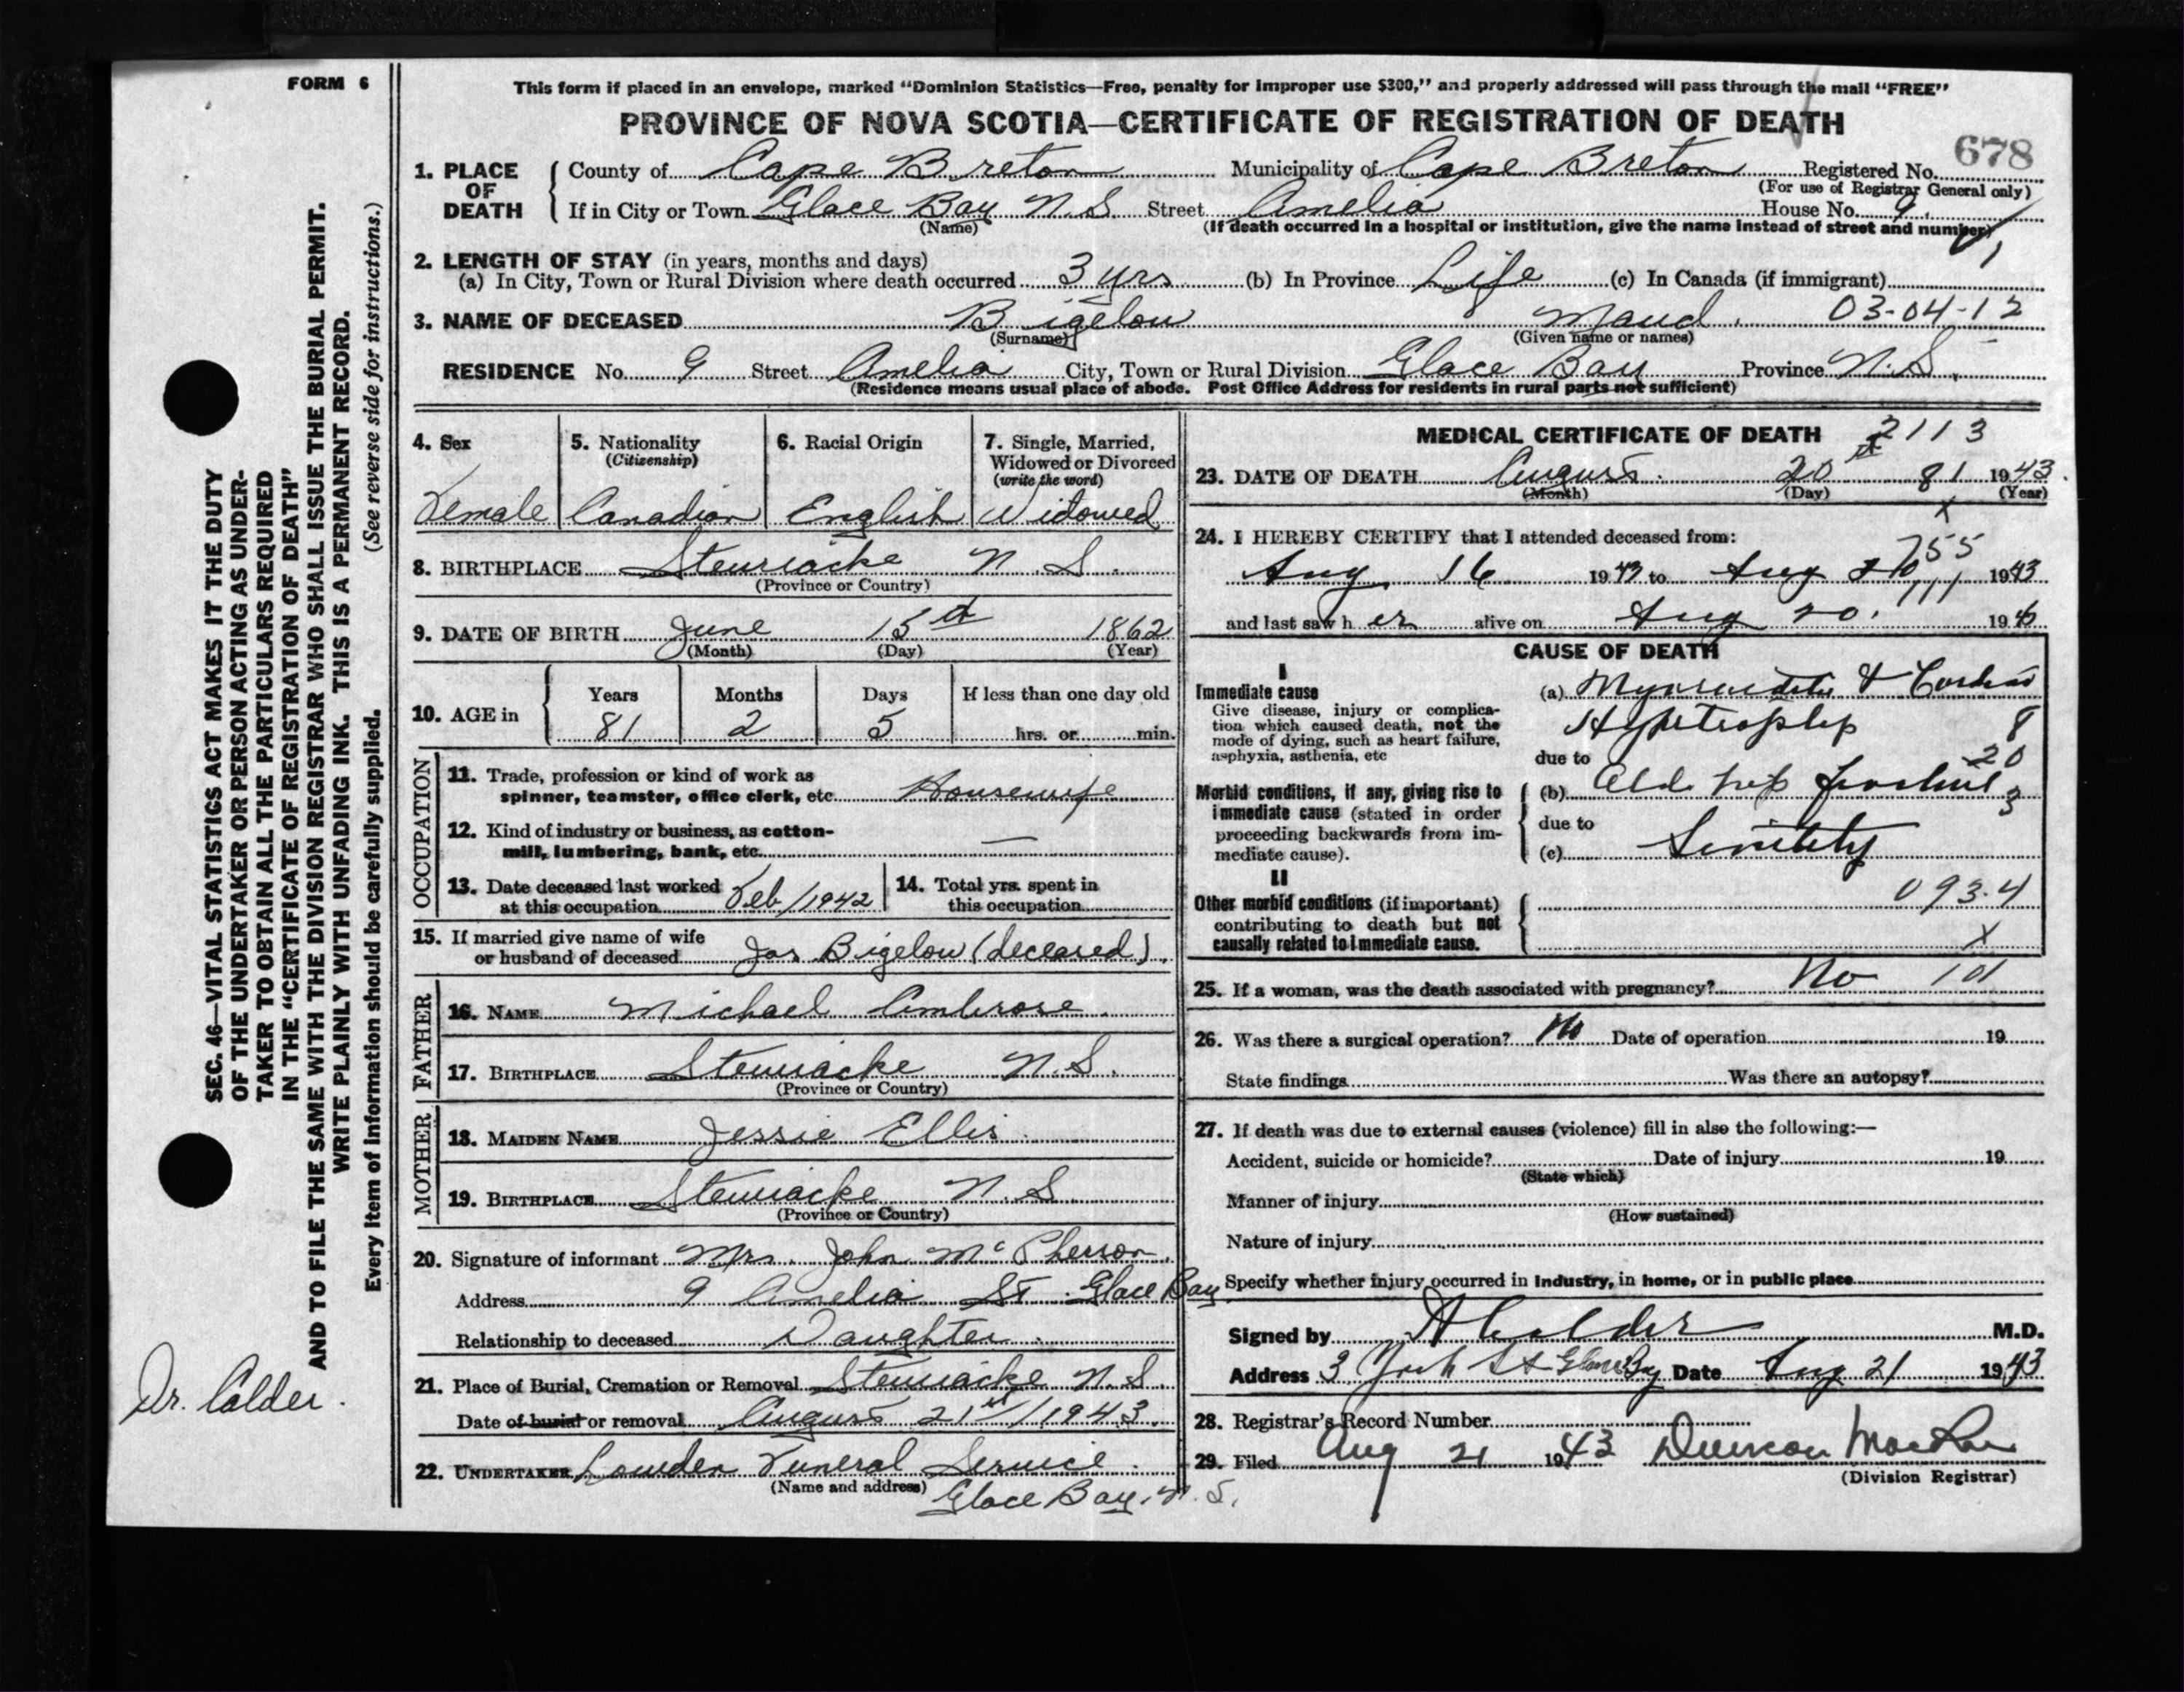 FORM 6
This form if placed in an envelope, marked "Dominion Statistics—Free, penalty for improper use $300," and properly addressed will pass through the mail "FREE"
PROVINCE OF NOVA SCOTIA—CERTIFICATE OF REGISTRATION OF DEATH
678
1. PLACE OF DEATH County of Cape Breton Municipality of Cape Breton Registered No.
(For use of Registrar General only)
If in City or Town Glace Bay N.S Street Amelia House No. 9.
(Name) (If death occurred in a hospital or institution, give the name instead of street and number)
2. LENGTH OF STAY (in years, months and days)
(a) In City, Town or Rural Division where death occurred 3 yrs (b) In Province Life (c) In Canada (if immigrant)
3. NAME OF DECEASED Bigelow Maud. 03-04-12
(Surname) (Given name or names)
RESIDENCE No. 9 Street Amelia City, Town or Rural Division Glace Bay Province N.S.
(Residence means usual place of abode. Post Office Address for residents in rural parts not sufficient)
4. Sex 5. Nationality (Citizenship) 6. Racial Origin 7. Single, Married, Widowed or Divorced (write the word)
Female Canadian English Widowed
8. BIRTHPLACE Stewiacke N.S.
(Province or Country)
9. DATE OF BIRTH June 15th 1862
(Month) (Day) (Year)
10. AGE in Years Months Days If less than one day old
81 2 5 hrs. or min.
OCCUPATION
11. Trade, profession or kind of work as
spinner, teamster, office clerk, etc. Housewife
12. Kind of industry or business, as cotton-
mill, lumbering, bank, etc. —
13. Date deceased last worked
at this occupation Feb/1942
14. Total yrs. spent in
this occupation
15. If married give name of wife
or husband of deceased Jas Bigelow (deceased).
FATHER
16. NAME Michael Ambrose.
17. BIRTHPLACE Stewiacke N.S.
(Province or Country)
MOTHER
18. MAIDEN NAME Jessie Ellis.
19. BIRTHPLACE Stewiacke N.S
(Province or Country)
20. Signature of informant Mrs. John McPherson.
Address 9 Amelia St. Glace Bay
Relationship to deceased Daughter.
21. Place of Burial, Cremation or Removal Stewiacke N.S.
Date of burial or removal August 21st/1943.
22. UNDERTAKER Lowden Funeral Service.
(Name and address) Glace Bay, N.S.
MEDICAL CERTIFICATE OF DEATH 2113
23. DATE OF DEATH August. 20th 81 1943.
(Month) (Day) (Year)
x
24. I HEREBY CERTIFY that I attended deceased from:
755
Aug 16 1943 to Aug 20 1943
111
and last saw h er alive on Aug 20. 1943
CAUSE OF DEATH
I
Immediate cause
Give disease, injury or complica-
tion which caused death, not the
mode of dying, such as heart failure,
asphyxia, asthenia, etc
(a) Myocarditis & Cardiac
Hypertrophy 8
due to 20
Morbid conditions, if any, giving rise to
immediate cause (stated in order
proceeding backwards from im-
mediate cause).
(b) Old hip fracture 3
due to
(c) Senility
II
Other morbid conditions (if important)
contributing to death but not
causally related to immediate cause.
093.4
X
25. If a woman, was the death associated with pregnancy? No 101
26. Was there a surgical operation? No Date of operation 19
State findings Was there an autopsy?
27. If death was due to external causes (violence) fill in also the following:—
Accident, suicide or homicide? Date of injury 19
(State which)
Manner of injury
(How sustained)
Nature of injury
Specify whether injury occurred in industry, in home, or in public place
Signed by A Calder M.D.
Address 3 York St Glace Bay Date Aug 21 1943
28. Registrar's Record Number
29. Filed Aug 21 1943 Duncan MacRae
(Division Registrar)
SEC. 46—VITAL STATISTICS ACT MAKES IT THE DUTY
OF THE UNDERTAKER OR PERSON ACTING AS UNDER-
TAKER TO OBTAIN ALL THE PARTICULARS REQUIRED
IN THE "CERTIFICATE OF REGISTRATION OF DEATH"
AND TO FILE THE SAME WITH THE DIVISION REGISTRAR WHO SHALL ISSUE THE BURIAL PERMIT.
WRITE PLAINLY WITH UNFADING INK. THIS IS A PERMANENT RECORD.
Every item of information should be carefully supplied. (See reverse side for instructions.)
Dr. Calder.